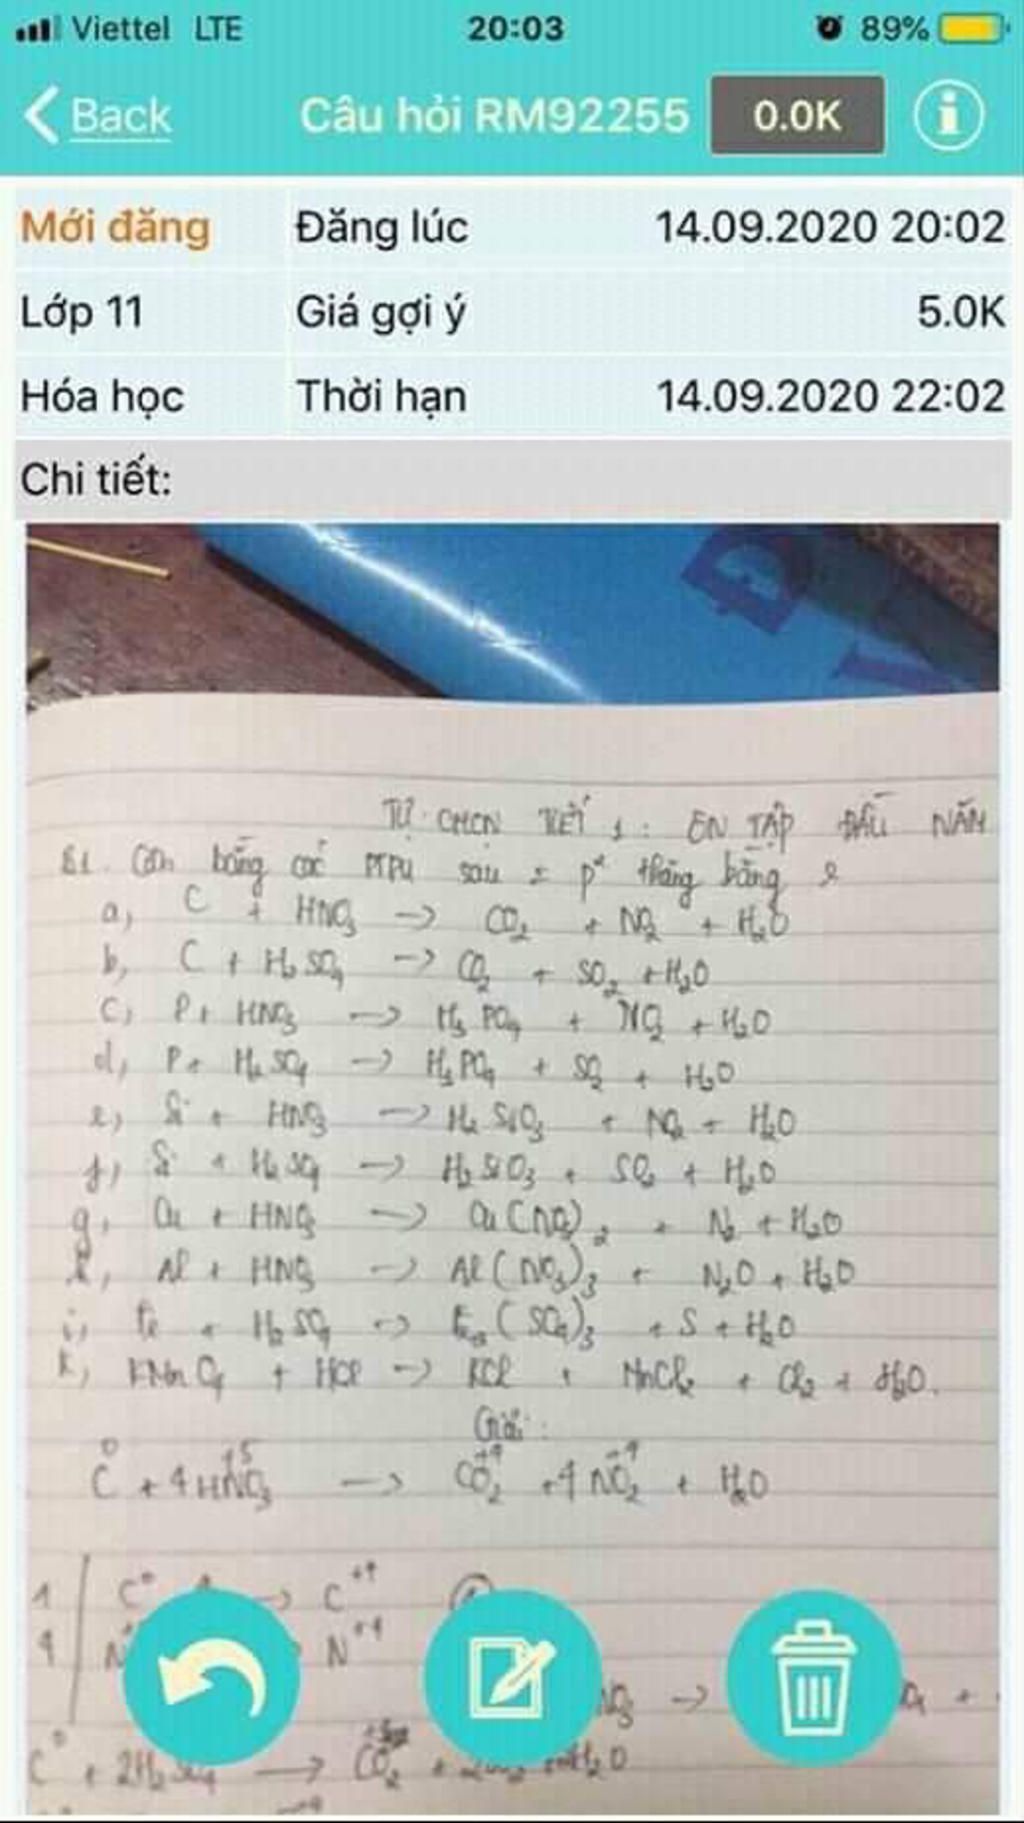 Viettel LTE 20:03 89%
Back Câu hỏi RM92255 0.0K i
Mới đăng Đăng lúc 14.09.2020 20:02
Lớp 11 Giá gợi ý 5.0K
Hóa học Thời hạn 14.09.2020 22:02
Chi tiết:
TỰ CHỌN TIẾT 1: ÔN TẬP ĐẦU NĂM
B1. Cân bằng các PTPU sau = p² thăng bằng e
a, C + HNO₃ → CO₂ + NO₂ + H₂O
b, C + H₂SO₄ → CO₂ + SO₂ + H₂O
c, P + HNO₃ → H₃PO₄ + NO₂ + H₂O
d, P + H₂SO₄ → H₃PO₄ + SO₂ + H₂O
e, Si + HNO₃ → H₂SiO₃ + NO₂ + H₂O
f, Si + H₂SO₄ → H₂SiO₃ + SO₂ + H₂O
g, Cu + HNO₃ → Cu(NO₃)₂ + N₂ + H₂O
h, Al + HNO₃ → Al(NO₃)₃ + N₂O + H₂O
i, Fe + H₂SO₄ → Fe₂(SO₄)₃ + S + H₂O
k, KMnO₄ + HCl → KCl + MnCl₂ + Cl₂ + H₂O.
Giải:
0 +5 +4 +4
C + 4HNO₃ → CO₂ + 4NO₂ + H₂O
1 C⁰ → C⁺⁴
4 N → N⁺⁴
→
C⁰ + 2H₂SO₄ → CO₂ + H₂O